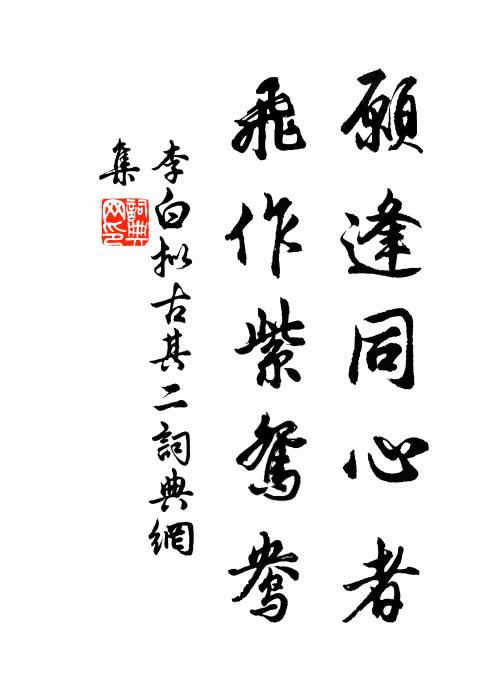 願逢同心者
飛作紫鴛鴦
李白拟古其二詞典網
集
詞典
网印